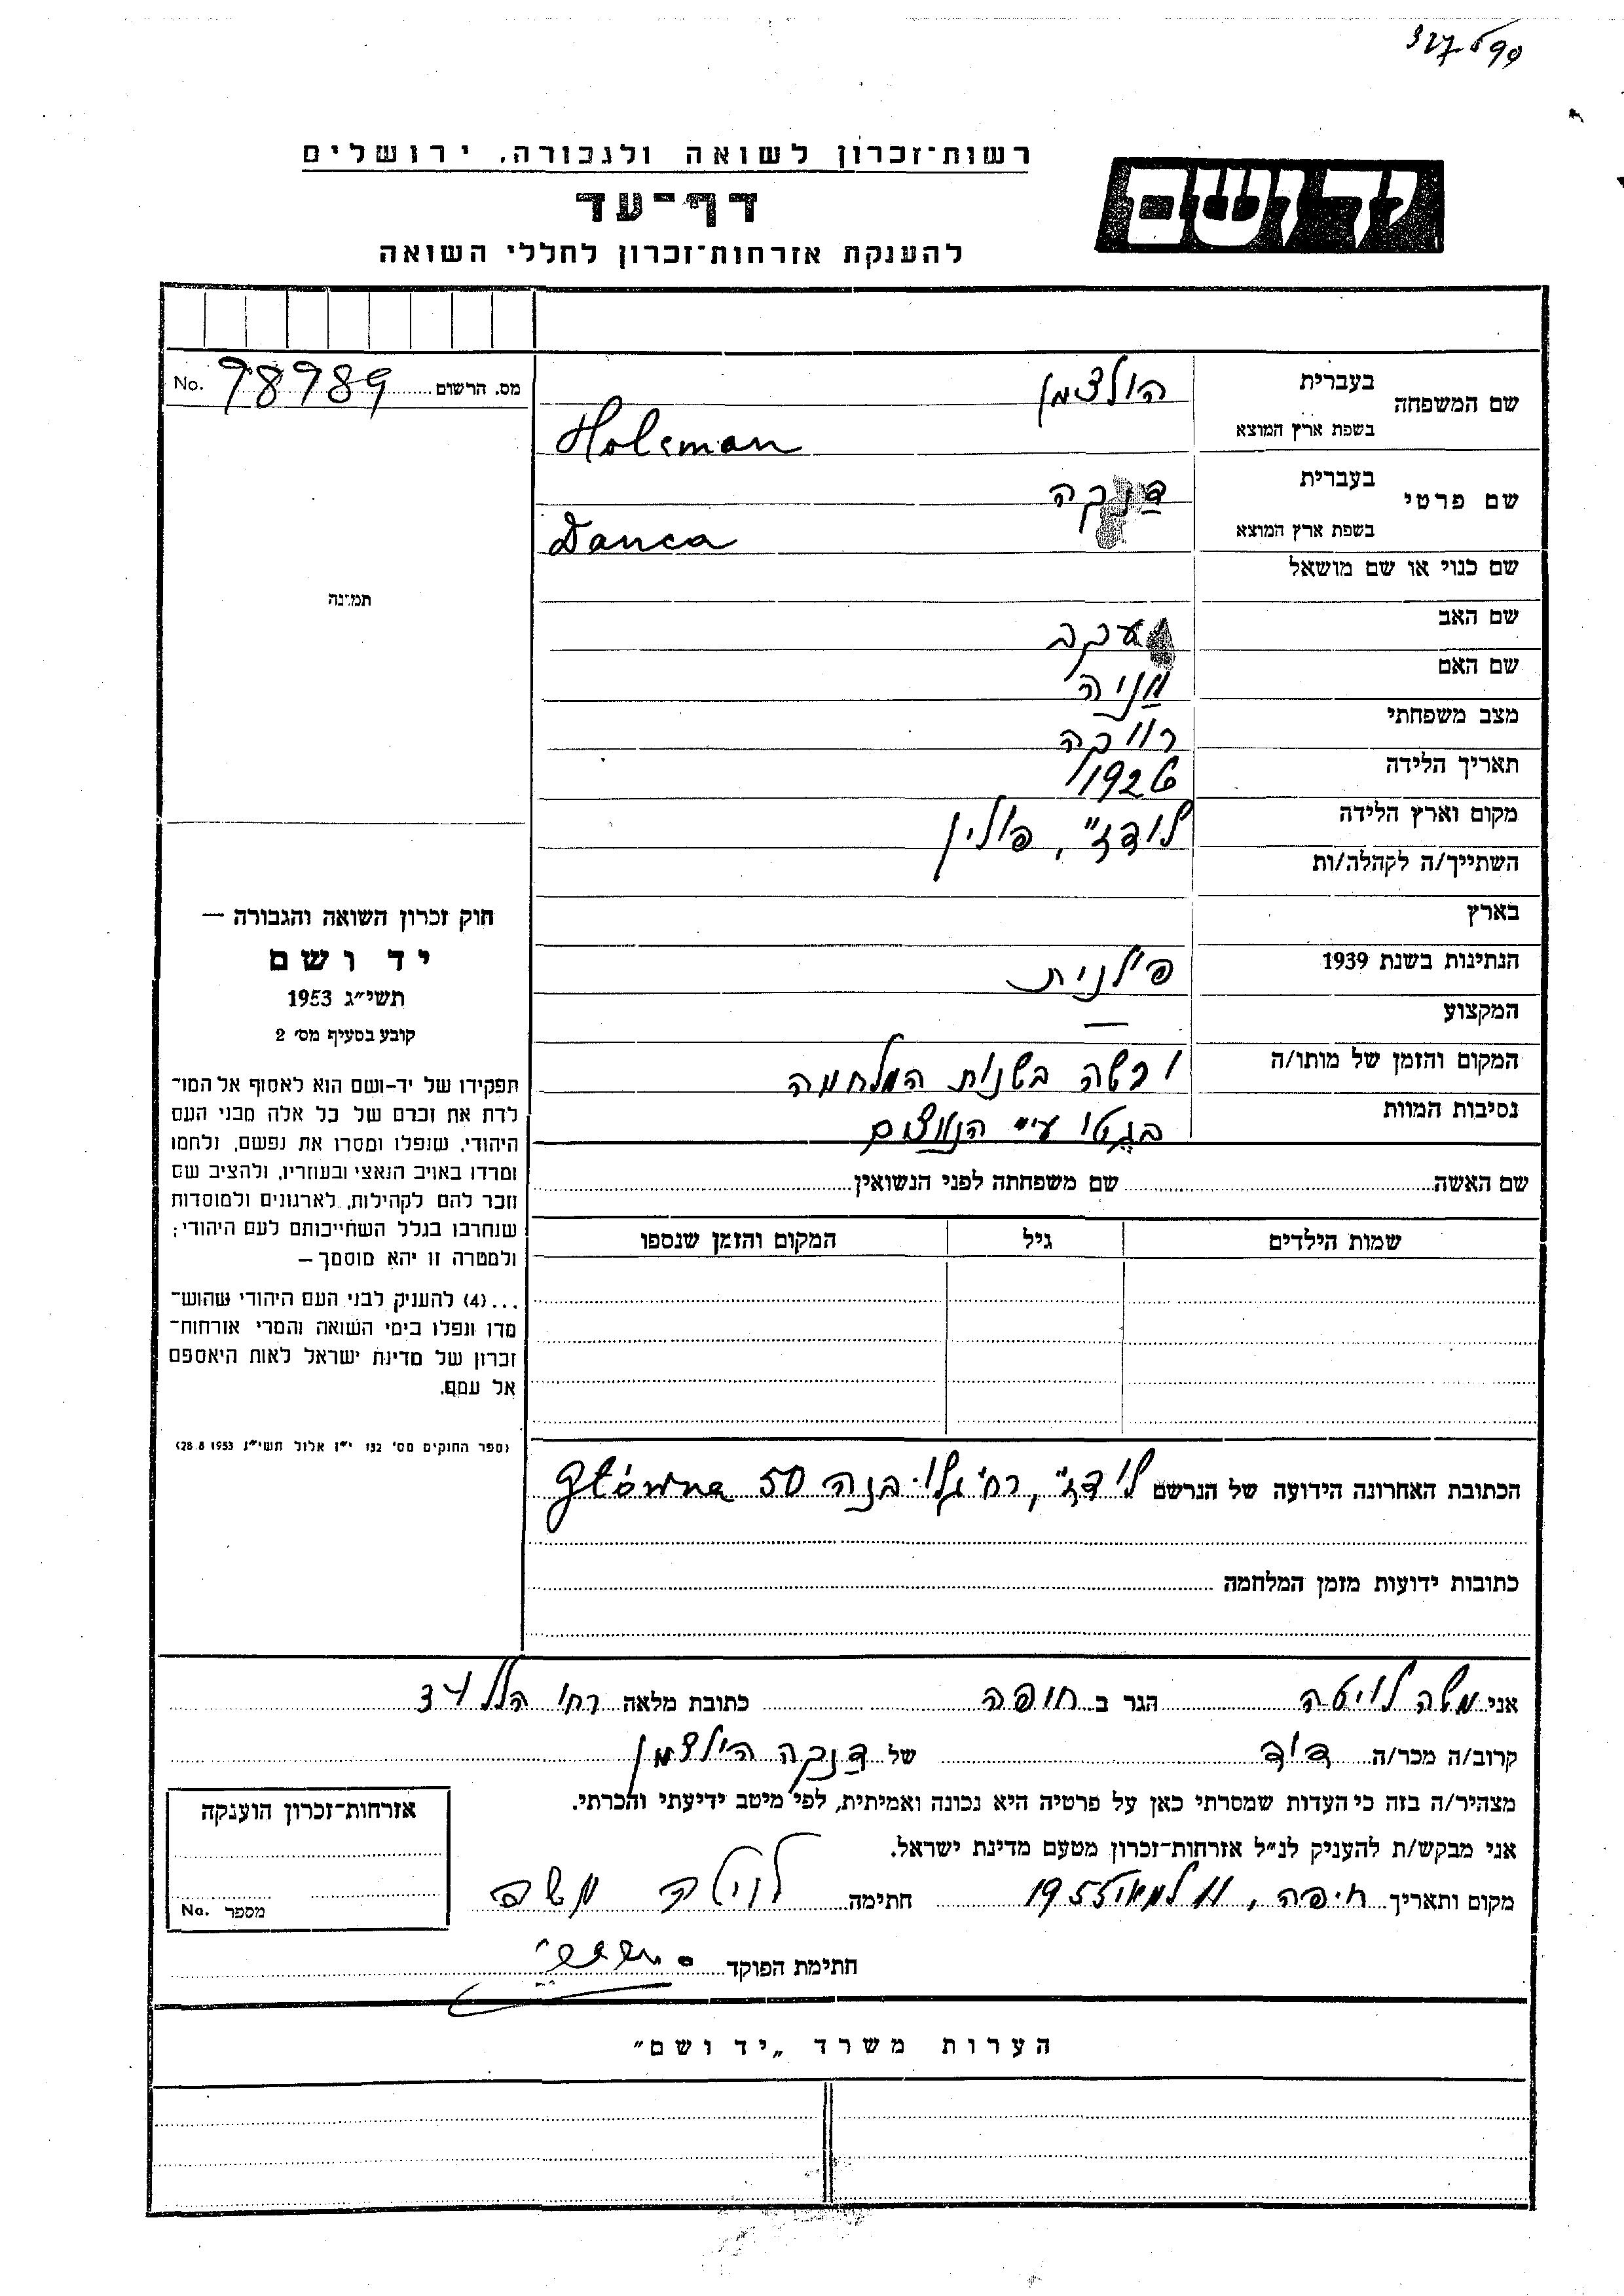 327 699
רשות־זכרון לשואה ולגבורה, ירושלים
יד ושם
דף־עד
להענקת אזרחות־זכרון לחללי השואה
מס. הרשום 98989 No.
שם המשפחה
בעברית הולצמן
בשפת ארץ המוצא Holcman
שם פרטי
בעברית דנקה
בשפת ארץ המוצא Danca
שם כנוי או שם מושאל
תמונה
שם האב יעקב
שם האם מניה
מצב משפחתי רווקה
תאריך הלידה 1926
מקום וארץ הלידה לודז", פולין
השתייך/ה לקהלה/ות
בארץ
הנתינות בשנת 1939 פולנית
המקצוע —
המקום והזמן של מותו/ה ורשה בשנות המלחמה
נסיבות המוות בגטו ע"י הנאצים
שם האשה שם משפחתה לפני הנשואין
שמות הילדים גיל המקום והזמן שנספו
חוק זכרון השואה והגבורה —
יד ושם
תשי״ג 1953
קובע בסעיף מס׳ 2
תפקידו של יד-ושם הוא לאסוף אל המו־
לדת את זכרם של כל אלה מבני העם
היהודי, שנפלו ומסרו את נפשם, נלחמו
ומרדו באויב הנאצי ובעוזריו, ולהציב שם
וזכר להם לקהילות, לארגונים ולמוסדות
שנחרבו בגלל השתייכותם לעם היהודי;
ולמטרה זו יהא מוסמך —
...(4) להעניק לבני העם היהודי שהוש־
מדו ונפלו בימי השואה והמרי אזרחות־
זכרון של מדינת ישראל לאות היאספם
אל עמם.
(ספר החוקים מס׳ 132 י״ז אלול תשי״ג 28.8.1953)
הכתובת האחרונה הידועה של הנרשם לודז", רח' גלובנה 50 Główna
כתובות ידועות מזמן המלחמה
אני משה לויטה הגר ב חיפה כתובת מלאה רח' הלל 34
קרוב/ה מכר/ה דוד של דנקה הולצמן
מצהיר/ה בזה כי העדות שמסרתי כאן על פרטיה היא נכונה ואמיתית, לפי מיטב ידיעתי והכרתי.
אני מבקש/ת להעניק לנ״ל אזרחות־זכרון מטעם מדינת ישראל.
מקום ותאריך חיפה, 11 למאי 1955 חתימה לויטה משה
חתימת הפוקד
אזרחות־זכרון הוענקה
מספר No.
הערות משרד „יד ושם״